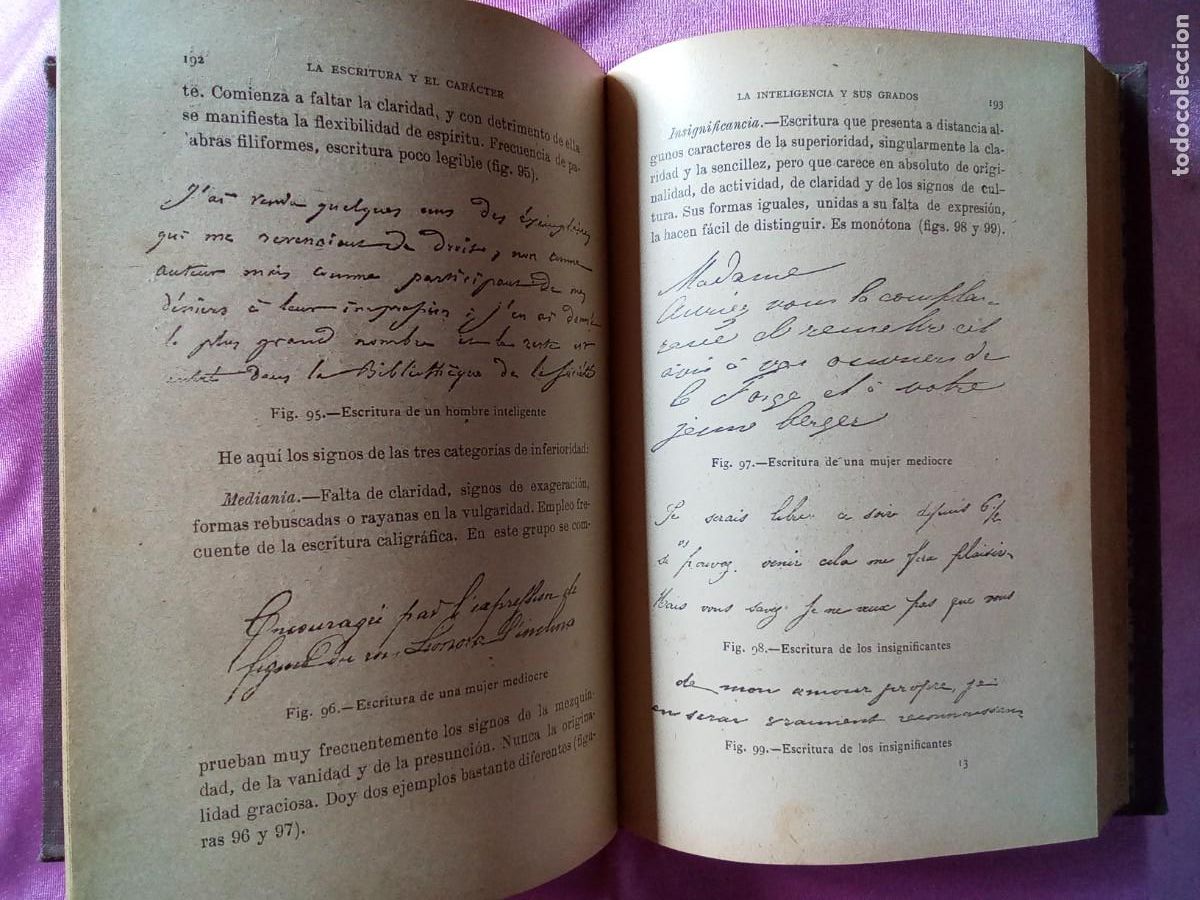 192
LA ESCRITURA Y EL CARÁCTER
te. Comienza a faltar la claridad, y con detrimento de ella
se manifiesta la flexibilidad de espíritu. Frecuencia de pa-
abras filiformes, escritura poco legible (fig. 95).
J'ai vendu quelques uns des exemplaires
qui me revenaient de droit, non comme
auteur mais comme participant de mes
déniers à leur impression; j'en ai donné
le plus grand nombre et le reste est
entré dans la Bibliothèque de la Société
Fig. 95.—Escritura de un hombre inteligente
He aquí los signos de las tres categorías de inferioridad:
Mediania.—Falta de claridad, signos de exageración,
formas rebuscadas o rayanas en la vulgaridad. Empleo fre-
cuente de la escritura caligráfica. En este grupo se com-
Encouragée par l'expression de
figure du
Fig. 96.—Escritura de una mujer mediocre
prueban muy frecuentemente los signos de la mezquin-
dad, de la vanidad y de la presunción. Nunca la origina-
lidad graciosa. Doy dos ejemplos bastante diferentes (figu-
ras 96 y 97).
LA INTELIGENCIA Y SUS GRADOS
193
Insignificancia.—Escritura que presenta a distancia al-
gunos caracteres de la superioridad, singularmente la cla-
ridad y la sencillez, pero que carece en absoluto de origi-
nalidad, de actividad, de claridad y de los signos de cul-
tura. Sus formas iguales, unidas a su falta de expresión,
la hacen fácil de distinguir. Es monótona (figs. 98 y 99).
Madame
Auriez vous la complai-
sance de remettre cet
avis à vos ouvriers de
la Forge et à votre
jeune berger
Fig. 97.—Escritura de una mujer mediocre
Je serais libre ce soir depuis 6 1/2
si pouvez venir cela me fera plaisir
Mais vous savez je ne veux pas que vous
Fig. 98.—Escritura de los insignificantes
de mon amour propre, je
en serai vraiment reconnaissant
Fig. 99.—Escritura de los insignificantes
13
todocoleccion